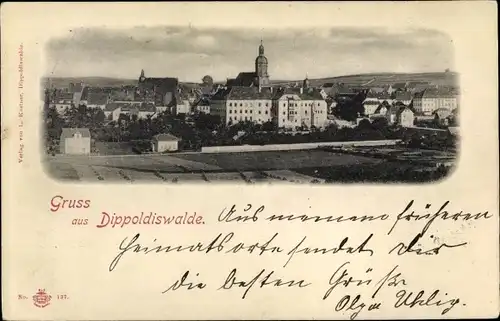 Verlag von L. Kästner, Dippoldiswalde.
Gruss
aus Dippoldiswalde.
Aus meinem früheren
Heimatsorte sendet Dir
die besten Grüße
Olga Uhlig.
No. 137.